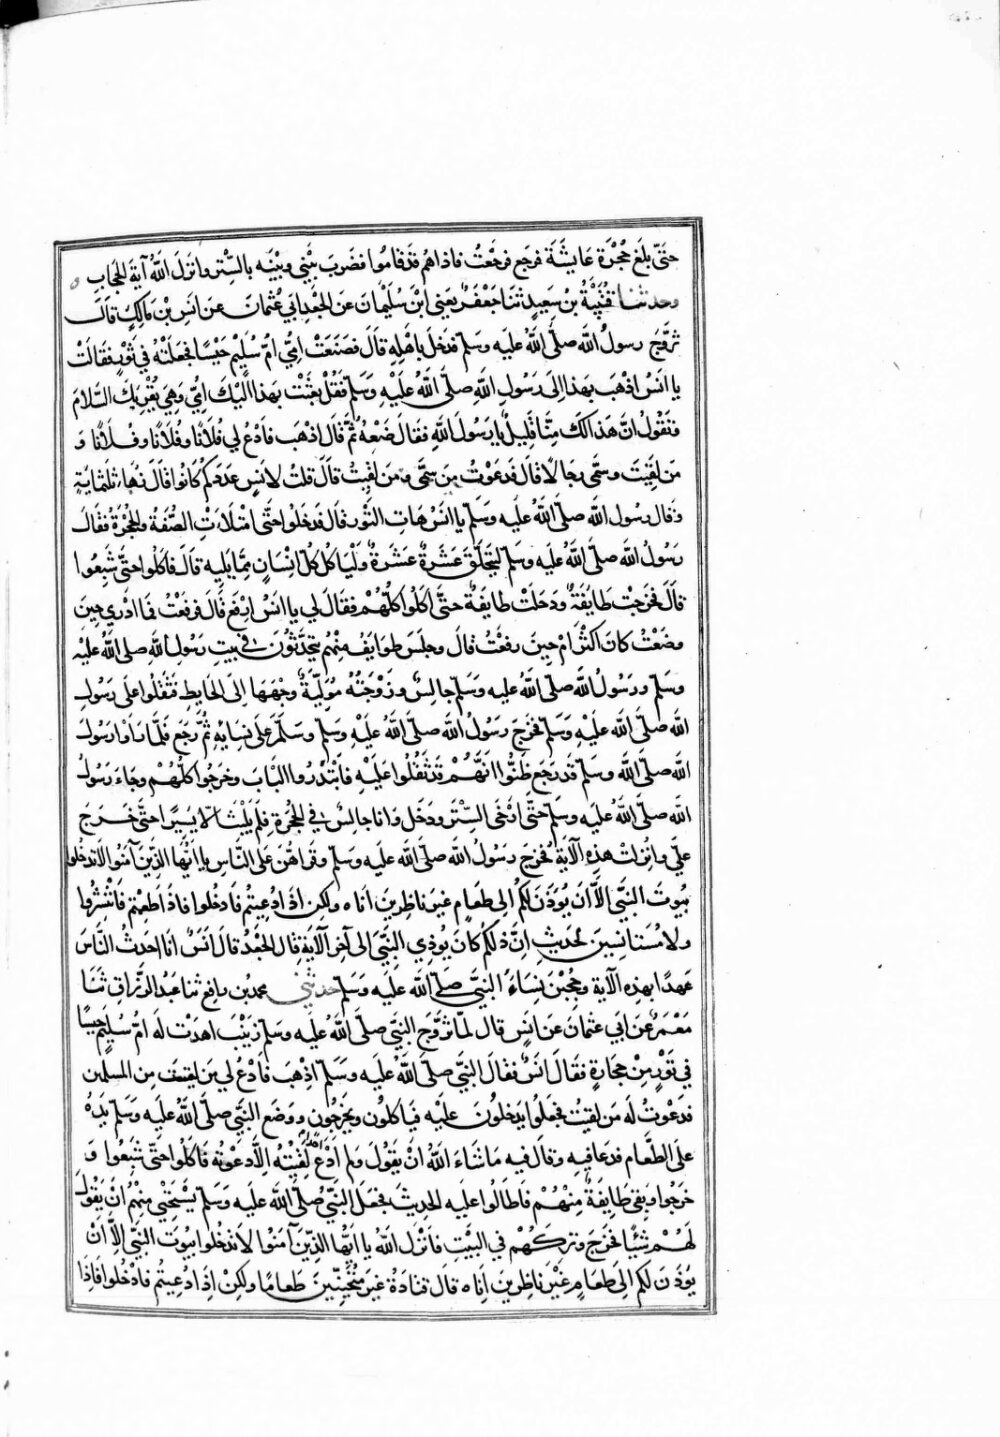 حَتّى بلَغ حُجْرَة عَايشَة فرجع فرجَعْتُ فاذاهُم قدقاموا فضرَبَ بَيْني وبيْنَه بالسِّتر وانزلَ اللهُ آية الحِجَابِ
وحدثنا قُتَيْبَةُ بن سَعِيدٍ ثنا جَعْفَرٌ يَعنى ابْنَ سُلَيْمانَ عن الجَعْدِ ابي عُثمانَ عن انَسِ بْن مَالِكٍ قالَ
تزوَّجَ رسولُ الله صلَّى اللهُ عليه وسَلّم فدخلَ باهْلِهِ قالَ فصَنَعَتْ امِّي امُّ سُلَيْم حَيْسًا فجَعَلتْهُ في تَوْرٍ فقالَتْ
يا انَسُ اذهَبْ بهَذا الى رَسُولِ اللهِ صلَّى اللهُ عَلَيْهِ وَسَلّم فقُلْ بعَثَتْ بهَذا اليْك امِّي وَهِيَ تُقْرِيك السَّلامَ
وَتقُولُ انَّ هَذا لكَ مِنّا قليلٌ يا رَسُولَ اللهِ فقال ضَعْهُ ثُمَّ قال اذهَبْ فادْعُ لي فُلانًا وفُلانًا وفُلانًا وَ
مَن لقِيتَ وسَمَّى رجالًا قال فدَعَوْتُ مَن سَمَّى ومَن لقِيتُ قالَ قلتُ لانسٍ عدَدكم كانوا قال زُهاءَ ثلثمايةٍ
وقال رسول الله صلَّى اللهُ عليه وسَلّم يا انَسُ هاتِ التَّوْرَ قال فدَخلوا حتّى امْتلأتِ الصُّفَةُ والحُجْرَةُ فقالَ
رَسُولُ الله صلَّى اللهُ عليه وسلم ليتحَلَّقْ عَشَرةٌ عَشَرةٌ وَلْيَاكُلْ كلُّ انسَانٍ مِمّا يليه قالَ فاكلُوا حتّى شَبِعُوا
قالَ فخرَجَتْ طايفَةٌ ودَخَلتْ طايفَةٌ حتَّى اكلُوا كلُّهُمْ فقالَ لي يا انَسُ ارْفَعْ قالَ فرفعْتُ فما ادْري حِينَ
وضعْتُ كانَ اكثرَ ام حِينَ رفعْتُ قالَ وجلَسَ طوايفُ مِنهُم يتحدَّثُونَ في بيتِ رَسُولِ اللهِ صلى اللهُ عليْه
وسَلم ورَسُولُ الله صلَّى اللهُ عليه وسَلم جالسٌ وزَوْجَتُهُ مُوَلِّيَةٌ وجْهَهَا الى الحَايطِ فثقُلوا على رَسُولِ
الله صلَّى اللهُ عَلَيْهِ وَسَلّم فخرَجَ رَسُولُ الله صلَّى اللهُ عليْهِ وسلّم وسَلّمَ على نِسَايِهِ ثُمَّ رَجَع فلَمَّا رَاوْا رسُولَ
اللهِ صلَّى الله وسلم قدرَجعَ ظَنُّوا انَّهُمْ قدْ ثقُلُوا عليْهِ فابْتَدَرُوا البَابَ وخرَجُوا كلُّهُمْ وجاءَ رَسُولُ
الله صلَّى اللهُ عليه وسَلّم حتّى ارْخَى السِّتْرَ ودَخلَ وانا جالسٌ في الحُجْرَةِ فلَم يلْبَثْ الّا يَسيرًا حتَّى خَرجَ
علَيّ وانزلتْ هذِهِ الآيَةُ فخرَجَ رسولُ الله صلَّى الله عليه وسلم وقراهُنَّ على النّاسِ يا ايّها الذّينَ آمنُوا لا تدخُلوا
بُيوتَ النّبيِّ الاّ ان يُؤذنَ لكُم الى طَعامٍ غيرَ ناظِرينَ اناه ولكن اذا دُعِيتُم فادخُلوا فاذا طعِمْتم فانْتشِرُوا
ولا مُستانِسِينَ لحَديثٍ انّ ذلكم كان يُؤذي النّبيَّ الى آخِر الآيَةِ قال الجَعْدُ قال انَسٌ انا احدثُ النَّاسِ
عَهدًا بهذه الآيَةِ وحُجِبْنَ نِسَاءُ النبيِّ صلَّى الله عليه وسَلم حدثني محمد بن رافع ثنا عبدُ الرّزاقِ ثنَا
مَعْمَرٌ عن ابي عثمانَ عَن انَسٍ قال لمّا تزوّجَ النبي صلَّى اللهُ عليه وسلم زينَبَ اهدَتْ له امُّ سُليمٍ حَيْسًا
في تَوْرٍ مِن حِجَارةٍ فقالَ انَسٌ فقالَ النَّبيُّ صلَّى اللهُ عليه وسَلَّم اذْهَبْ فادْعُ لي مَن لقيت مِن المسلمين
فدعَوْتُ لَه مَن لقيْتُ فجعَلُوا يَدخلُونَ عليْه فيَاكلُون ويَخرُجون ووَضَع النبيُّ صلَّى اللهُ عليه وسَلم يدَهُ
على الطَّعامِ فدعا فيهِ وقال فيه مَا شاءَ اللهُ انْ يقُولَ ولم ادَعْ احدًا لقِيتُه الاَّ دعَوْتُه فاكلُوا حتّى شبعُوا وَ
خرجُوا وبقي طايِفةٌ مِنهُمْ فاطالُوا عليه الحديثَ فجعَلَ النّبيُّ صلَّى الله عليه وسَلم يَسْتحْيي مِنهُمْ انْ يقُولَ
لهُمْ شيْئًا فخرَجَ وترَكَهُمْ في البَيْتِ فانزلَ اللهُ يا ايّها الذّينَ آمنُوا لا تدخُلوا بيُوتَ النَّبيِّ الاَّ انْ
يُؤذنَ لكم الى طَعامٍ غيْرَ ناظِرينَ اِناه قالَ قتادَةُ غيرَ مُتحَيِّنينَ طَعامًا ولكنْ اذا دُعيتُم فادخُلوا فاذا